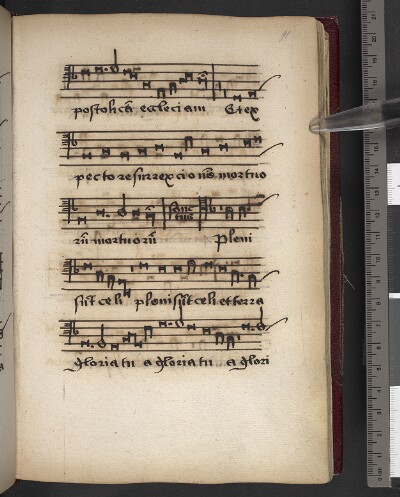 postolicā eccleciam Et ex
pecto resurrexcionē mortuo
rū mortuorū Sanc
tus Pleni
sūt celi pleni sūt celi et terra
gloria tu a gloria tu a glori